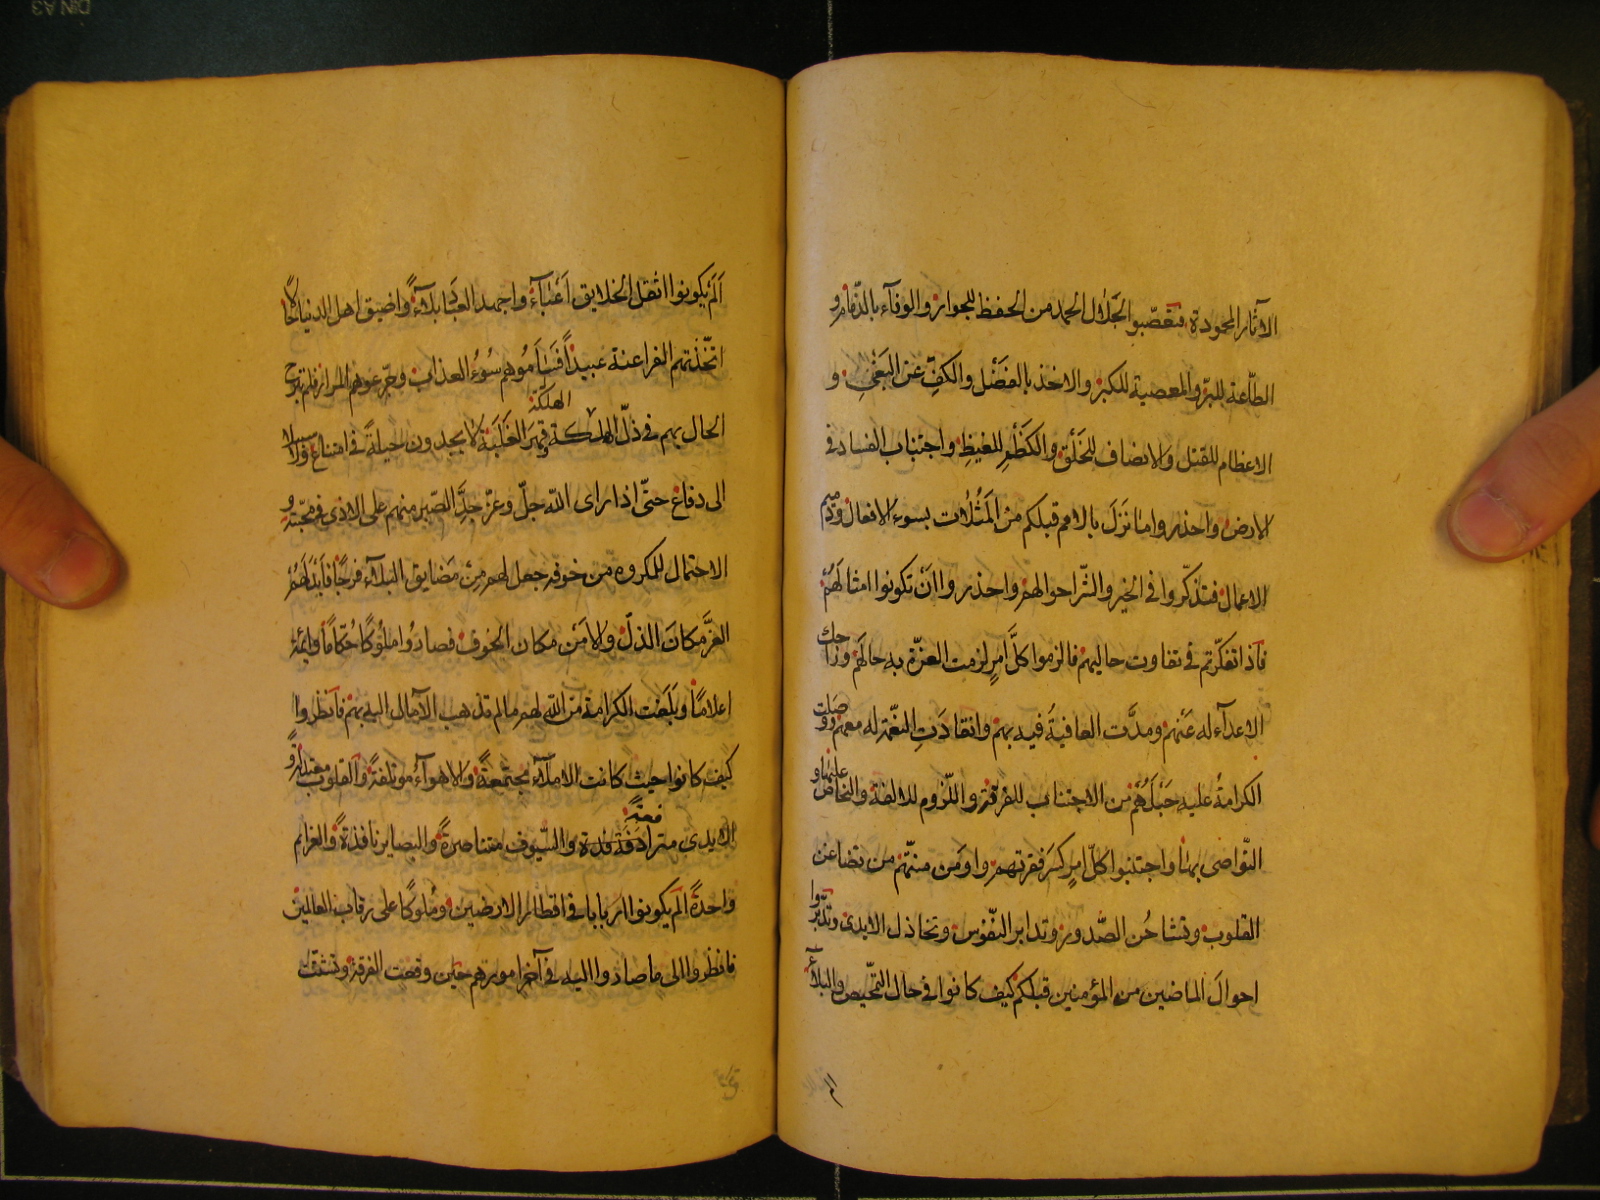 الآثار المحمودة فتعصّبوا لخلال الحمد من الحفظ للجوار والوفآء بالذّمام و
الطّاعة للبرّ والمعصية للكبر والاخذ بالفضل والكفّ عن البغي و
الاعظام للقتل والانصاف للخلق والكظم للغيظ واجتناب الفساد في
الارض واحذروا ما نزل بالامم قبلكم من المثلات بسوء الافعال وذميم
الاعمال فتذكّروا في الخير والشّر احوالهم واحذروا ان تكونوا امثالهم
فاذا تفكّرتم في تفاوت حاليهم فالزموا كلّ امر لزمت العزّة به حالهم وزاحت
الاعدآء له عنهم ومدّت العافية فيه بهم وانقادت النعمة له معهم ووصلت
الكرامة عليه حبلهم من الاجتناب للفرقة واللّزوم للالفة والتحاضّ عليها و
التّواصي بها واجتنبوا كلّ امر كسر فقرتهم واوهن منّتهم من تضاغن
القلوب وتشاحن الصّدور وتدابر النّفوس وتخاذل الايدي وتدبّروا
احوال الماضين من المؤمنين قبلكم كيف كانوا في حال التمحيص والبلآء
الم
الم يكونوا اثقل الخلايق اعبآء واجهد العباد بلآء واضيق اهل الدنيا حالا
اتّخذتهم الفراعنة عبيدا فساموهم سوء العذاب وجرّعوهم المرار فلم تبرح
الهلكة
الحال بهم في ذلّ الهلكة وقهر الغلبة لا يجدون حيلة في امتناع ولا سبيلا
الى دفاع حتّى اذا راى اللّه جلّ وعزّ جدّ الصّبر منهم على الاذى في محبّته و
الاحتمال للمكروه من خوفه جعل لهم من مضايق البلآء فرجا فابدلهم
العزّ مكان الذلّ والامن مكان الخوف فصاروا ملوكا حكّاما وايمّة
اعلاما وبلغت الكرامة من اللّه لهم ما لم تذهب الآمال اليه بهم فانظروا
كيف كانوا حيث كانت الاملآء مجتمعة والاهوآء موتلفة والقلوب معتدلة و
الايدي مترادفة والسّيوف متناصرة والبصاير نافذة والعزايم
واحدة الم يكونوا اربابا في اقطار الارضين وملوكا على رقاب العالمين
فانظروا الى ما صاروا اليه في آخر امورهم حين وقعت الفرقة وتشتّت